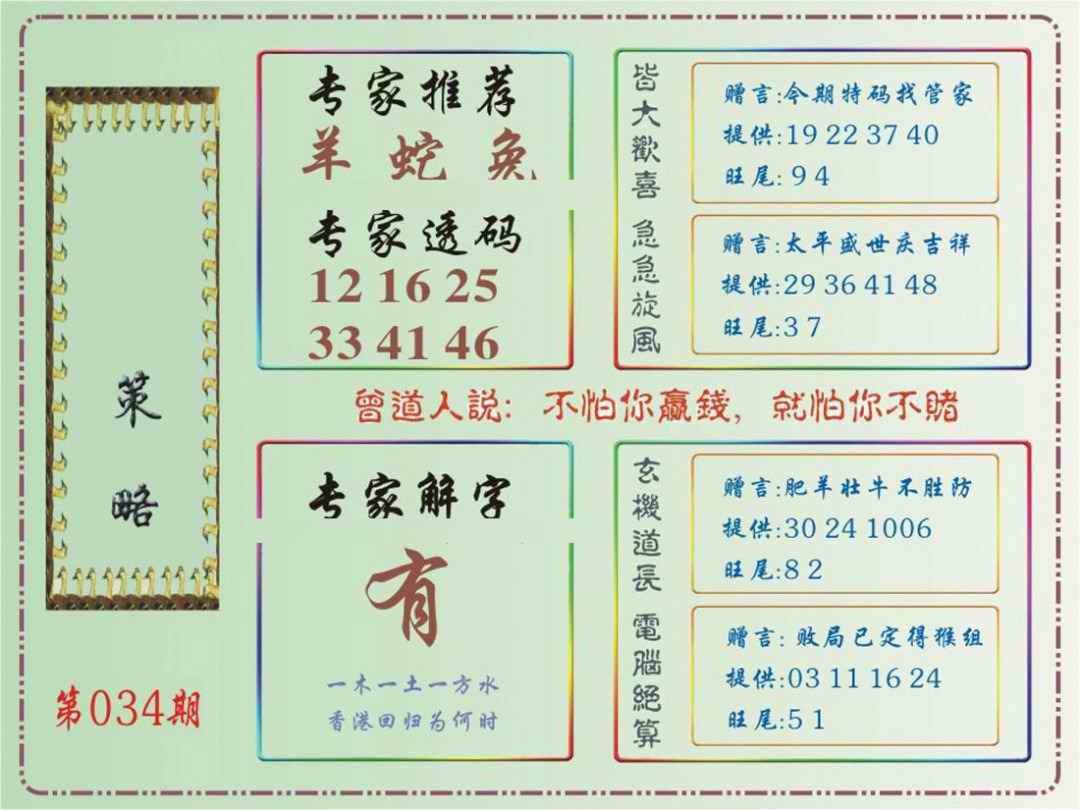 策略
第034期
专家推荐
羊 蛇 兔
专家透码
12 16 25
33 41 46
皆大歡喜
赠言:今期特码找管家
提供:19 22 37 40
旺尾: 9 4
急急旋風
赠言:太平盛世庆吉祥
提供:29 36 41 48
旺尾:3 7
曾道人説: 不怕你贏錢, 就怕你不賭
专家解字
有
一木一土一方水
香港回归为何时
玄機道長
赠言:肥羊壮牛不胜防
提供:30 24 1006
旺尾:8 2
電腦絕算
赠言: 败局已定得猴组
提供:03 11 16 24
旺尾:5 1